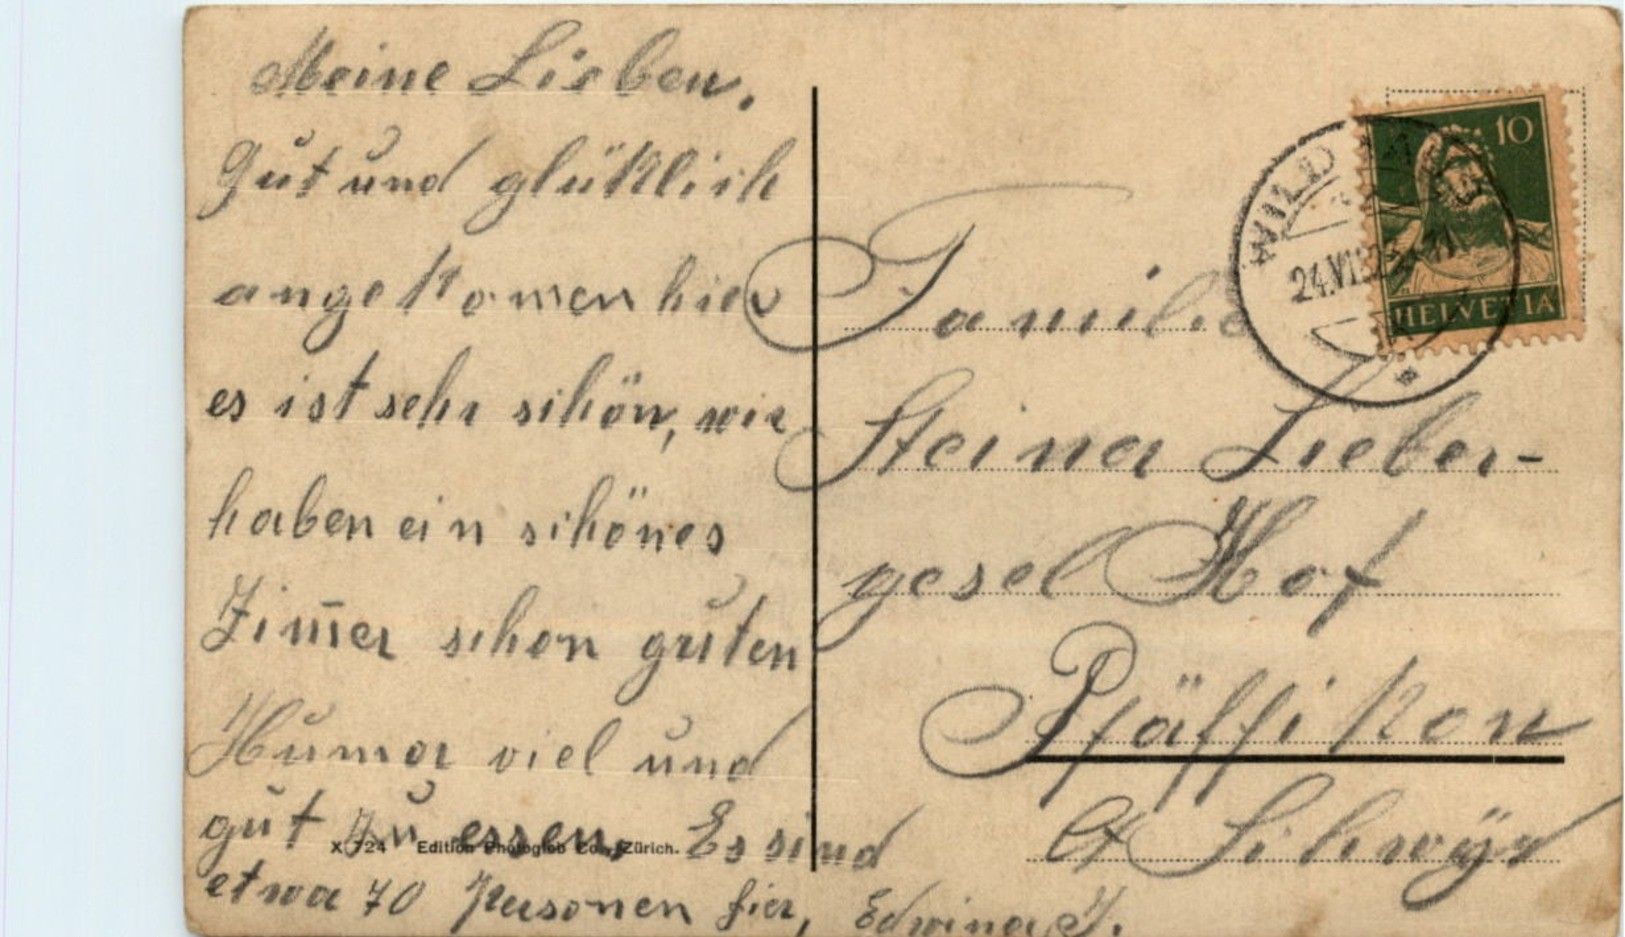 Meine Lieben.
Gut und glüklich
angekomen hier
es ist sehr schön, wir
haben ein schönes
Zim̄er schon guten
Humor viel und
gut zu essen, Es sind
etwa 70 Personen hier, Edwina
X 724 Edition Photoglob Co., Zürich.
Familie
Steina Lieber-
gesel Hof
Pfäffikon
Ct Schwÿz
10
HELVETIA
24.VII